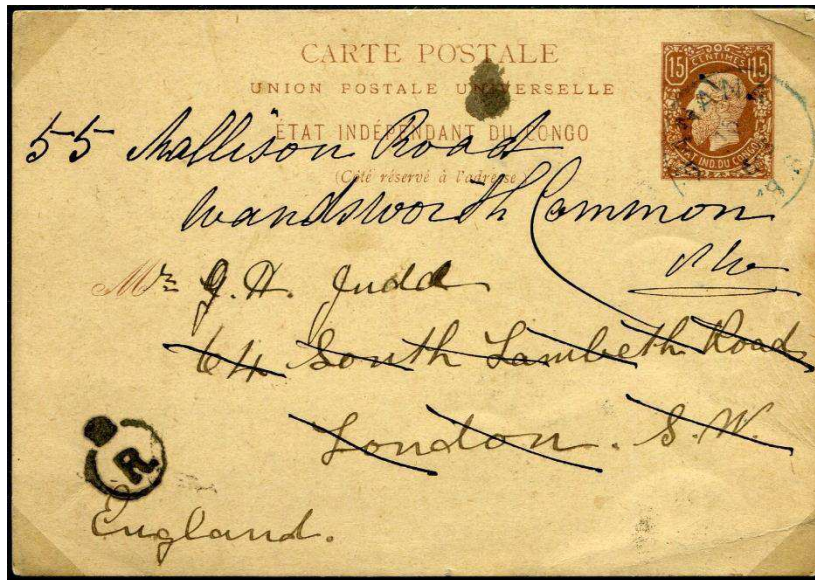 CARTE POSTALE
UNION POSTALE UNIVERSELLE
ÉTAT INDÉPENDANT DU CONGO
(Côté réservé à l'adresse)
15 CENTIMES 15
ETAT IND. DU CONGO
55 Mallison Road
Wandsworth Common
SW
Mr G. H. Judd
64 South Lambeth Road
London. S.W.
R.
England.